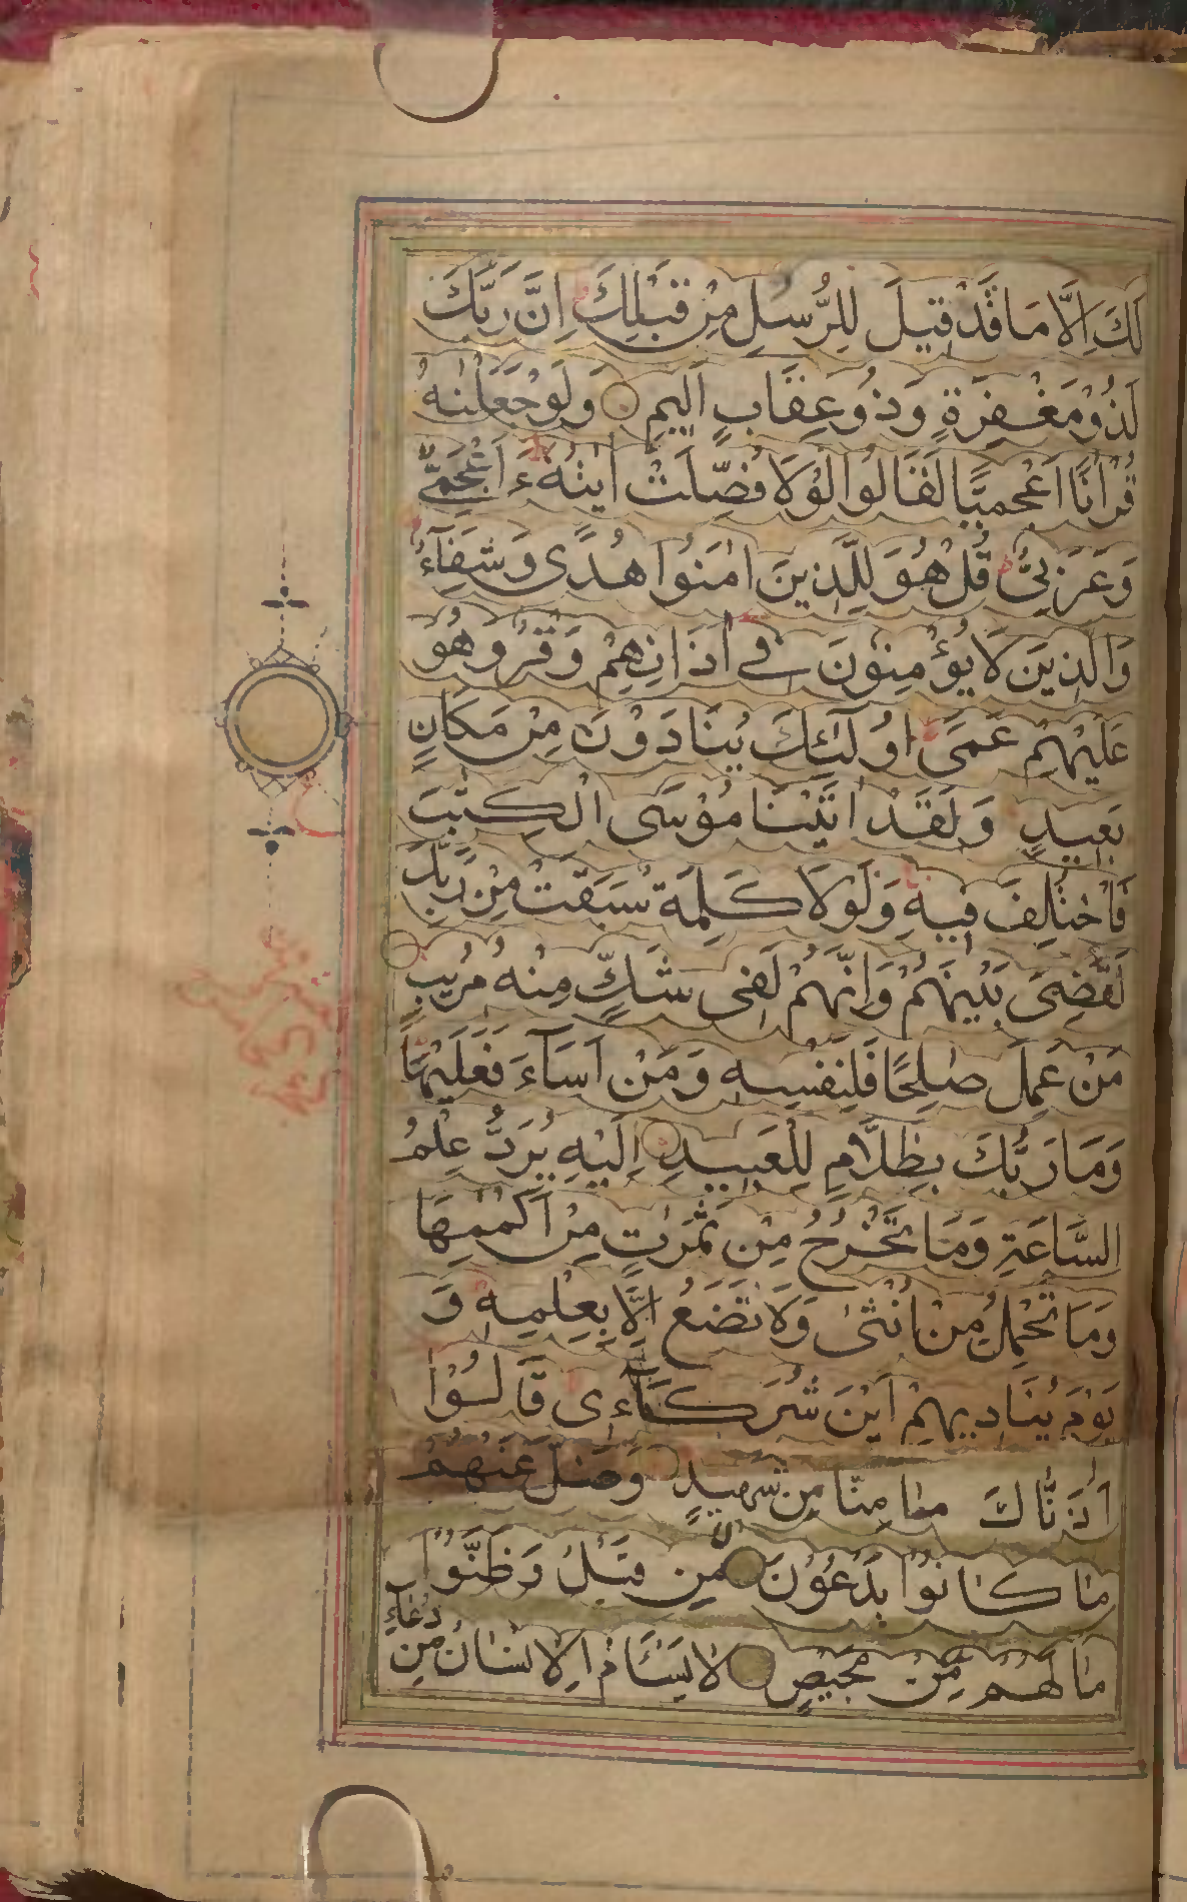 لَكَ اِلَّا مَا قَدْ قِيلَ لِلرُّسُلِ مِنْ قَبْلِكَ اِنَّ رَبَّكَ
لَذُوْ مَغْفِرَةٍ وَذُو عِقَابٍ اَلِيمٍ وَلَوْ جَعَلْنٰهُ
قُرْاٰنًا اَعْجَمِيًّا لَقَالُوا لَوْلَا فُصِّلَتْ اٰيٰتُهُ ءَاَعْجَمِيٌّ
وَعَرَبِيٌّ قُلْ هُوَ لِلَّذِينَ اٰمَنُوا هُدًى وَشِفَآءٌ
وَالَّذِينَ لَا يُؤْمِنُونَ فِي اٰذَانِهِمْ وَقْرٌ وَهُوَ
عَلَيْهِمْ عَمًى اُولٰئِكَ يُنَادَوْنَ مِنْ مَكَانٍ
بَعِيدٍ وَلَقَدْ اٰتَيْنَا مُوْسَى الْكِتٰبَ
فَاخْتُلِفَ فِيهِ وَلَوْلَا كَلِمَةٌ سَبَقَتْ مِنْ رَبِّكَ
لَقُضِيَ بَيْنَهُمْ وَاِنَّهُمْ لَفِى شَكٍّ مِنْهُ مُرِيبٍ
مَنْ عَمِلَ صٰلِحًا فَلِنَفْسِهِ وَمَنْ اَسَآءَ فَعَلَيْهَا
وَمَا رَبُّكَ بِظَلَّامٍ لِلْعَبِيدِ اِلَيْهِ يُرَدُّ عِلْمُ
السَّاعَةِ وَمَا تَخْرُجُ مِنْ ثَمَرٰتٍ مِنْ اَكْمٰمِهَا
وَمَا تَحْمِلُ مِنْ اُنْثٰى وَلَا تَضَعُ اِلَّا بِعِلْمِهِ وَ
يَوْمَ يُنَادِيهِمْ اَيْنَ شُرَكَآءِى قَالُوْا
اٰذَنَّاكَ مَا مِنَّا مِنْ شَهِيدٍ وَضَلَّ عَنْهُمْ
مَا كَانُوْا يَدْعُوْنَ مِنْ قَبْلُ وَظَنُّوْا
مَا لَهُمْ مِنْ مَحِيصٍ لَا يَسْئَمُ الْاِنْسَانُ مِنْ
دُعَآءِ